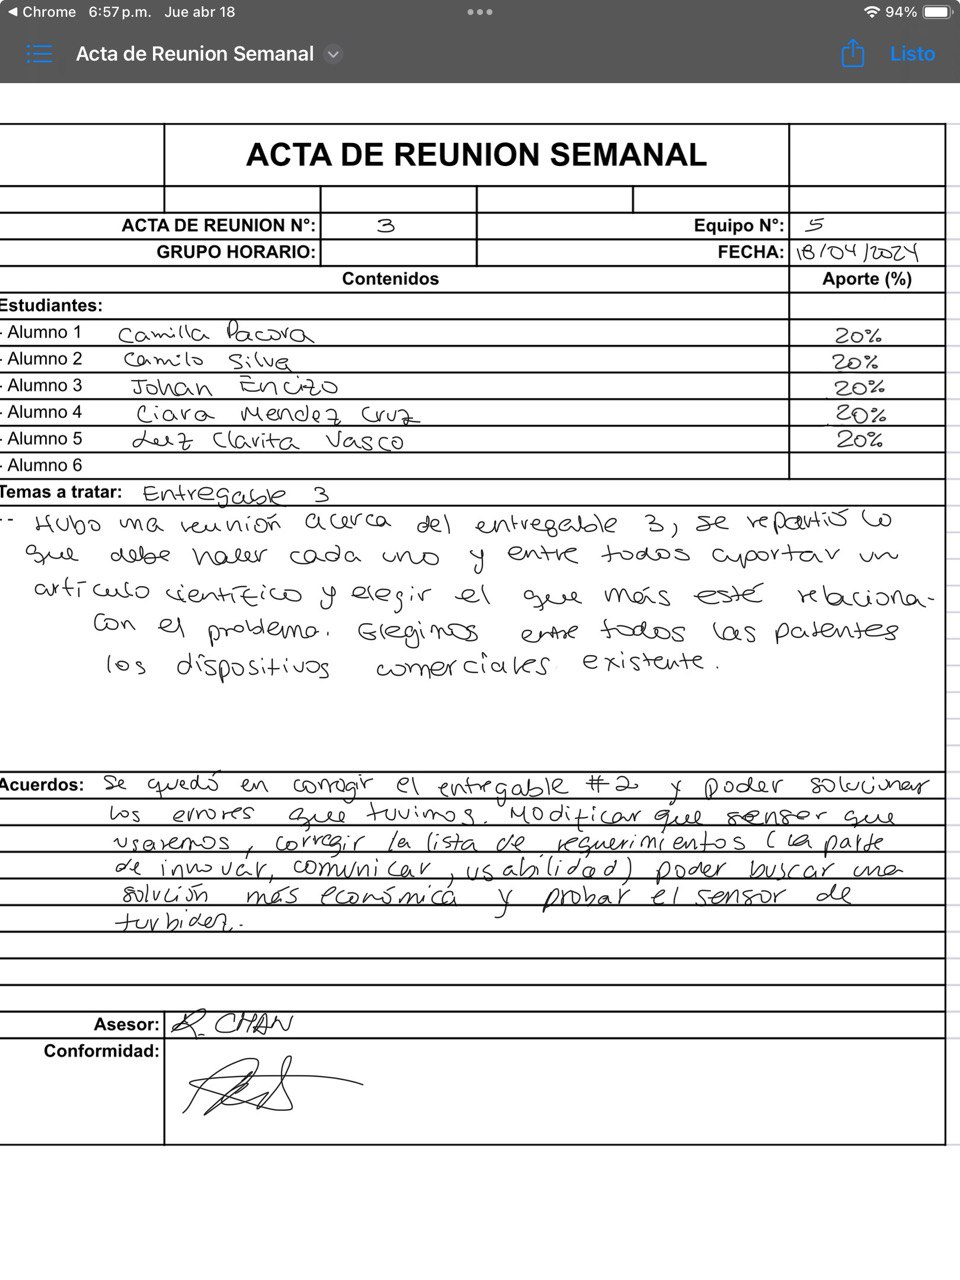 Chrome 6:57 p.m. Jue abr 18 94%
Acta de Reunion Semanal Listo
ACTA DE REUNION SEMANAL
ACTA DE REUNION N°: 3 Equipo N°: 5
GRUPO HORARIO: FECHA: 18/04/2024
Contenidos Aporte (%)
Estudiantes:
- Alumno 1 Camilla Pacora 20%
- Alumno 2 Camilo Silva 20%
- Alumno 3 Johan Encizo 20%
- Alumno 4 Ciara Mendez Cruz 20%
- Alumno 5 Luz Clarita Vasco 20%
- Alumno 6
Temas a tratar: Entregable 3
-- Hubo una reunión acerca del entregable 3, se repartió lo
que debe hacer cada uno y entre todos aportar un
artículo científico y elegir el que más esté relaciona-
con el problema. Eleginos entre todos las patentes
los dispositivos comerciales existente.
Acuerdos: Se quedó en corregir el entregable #2 y poder solucionar
los errores que tuvimos. Modificar que sensor que
usaremos, corregir la lista de requerimientos (la parte
de innovar, comunicar, usabilidad) poder buscar una
solución más económica y probar el sensor de
turbidez.
Asesor: R. CHAN
Conformidad: